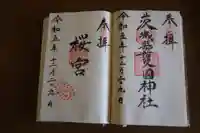 奉拝
茨城縣護國神社
令和五年十二月二九日
奉拝
桜宮
令和五年十二月二九日